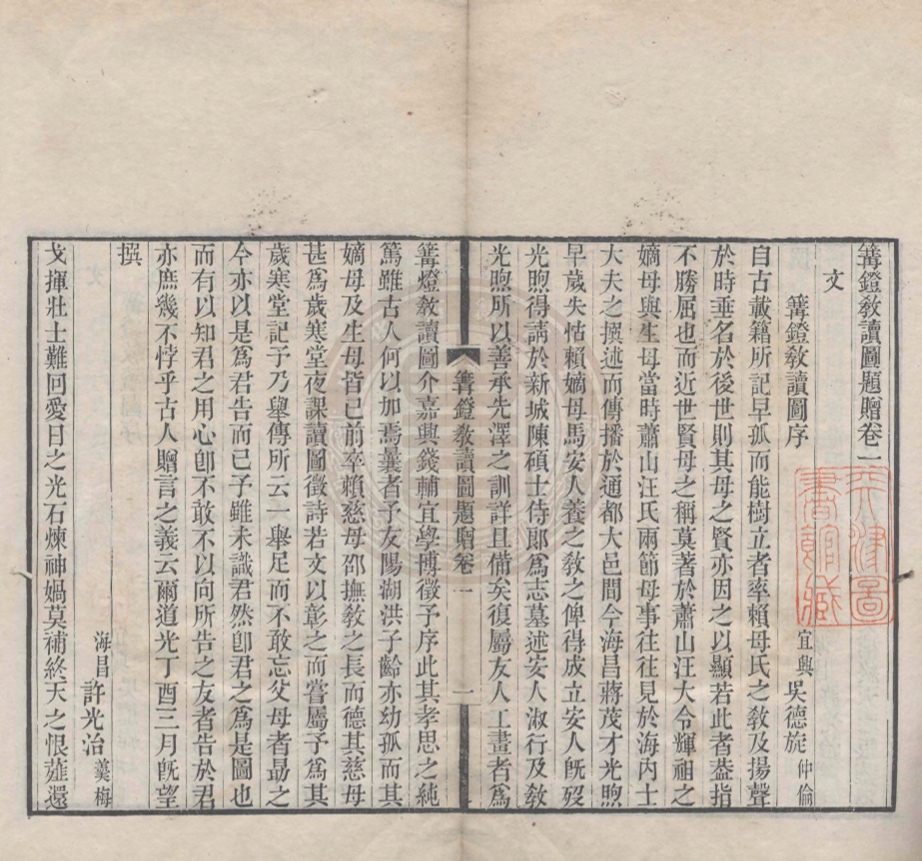 篝鐙敎讀圖題贈卷一
文
篝鐙敎讀圖序
宜興 吳德旋 仲倫
自古載籍所記早孤而能樹立者率賴母氏之敎及揚聲
於時垂名於後世則其母之賢亦因之以顯若此者葢指
不勝屈也而近世賢母之稱莫著於蕭山汪大令輝祖之
嫡母與生母當時蕭山汪氏兩節母事往往見於海內士
大夫之撰述而傳播於通都大邑間今海昌蔣茂才光煦
早歲失怙賴嫡母馬安人養之敎之俾得成立安人旣歿
光煦得請於新城陳碩士侍郎爲志墓述安人淑行及敎
光煦所以善承先澤之訓詳且備矣復屬友人工畫者爲
篝鐙敎讀圖題贈卷一
一
篝燈敎讀圖介嘉興錢輔宜學博徵予序此其孝思之純
篤雖古人何以加焉曩者予友陽湖洪子齡亦幼孤而其
嫡母及生母皆已前卒賴慈母邵撫敎之長而德其慈母
甚爲歲寒堂夜課讀圖徵詩若文以彰之而嘗屬予爲其
歲寒堂記予乃舉傳所云一舉足而不敢忘父母者勗之
今亦以是爲君告而已予雖未識君然卽君之爲是圖也
而有以知君之用心卽不敢不以向所告之友者告於君
亦庶幾不悖乎古人贈言之義云爾道光丁酉三月旣望
撰
海昌 許光治 羹梅
戈揮壯士難回愛日之光石煉神媧莫補終天之恨薤還
平津圖
書館藏